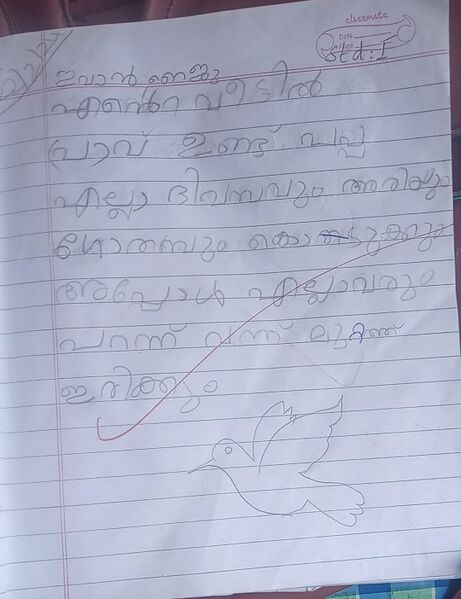 classmate
Date
Page
Std: I
ഇവാൻ ജൈജു
എൻ്റെ വീട്ടിൽ
പ്രാവ് ഉണ്ട് പപ്പ
എല്ലാ ദിവസവും അരിയും
ഗോതമ്പും കൊടുക്കും
അപ്പോൾ എല്ലാവരും
പറന്ന് വന്ന് മുറ്റത്ത്
ഇരിക്കും